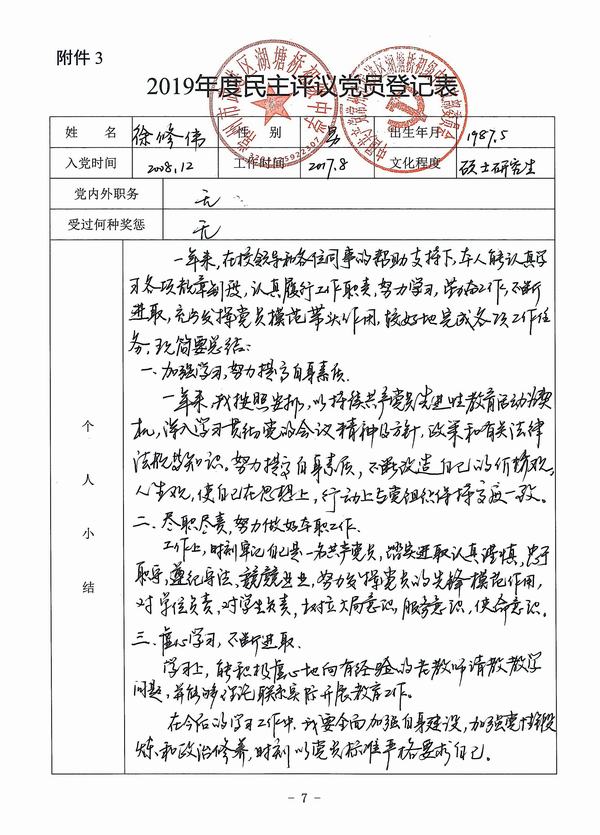 附件 3
2019年度民主评议党员登记表
姓 名 徐修伟 性 别 男 出生年月 1987.5
入党时间 2008.12 工作时间 2017.8 文化程度 硕士研究生
党内外职务 无
受过何种奖惩 无
个人小结
一年来，在校领导和各位同事的帮助支持下，本人能认真学
习各项规章制度，认真履行工作职责，努力学习，勤奋工作，不断
进取，充分发挥党员模范带头作用，较好地完成各项工作任
务，现简要总结：
一、加强学习，努力提高自身素质．
一年来，我按照安排，以持续共产党员先进性教育活动为契
机，深入学习贯彻党的会议精神及方针，政策和有关法律
法规等知识。努力提高自身素质，不断改造自己的价值观，
人生观，使自己在思想上，行动上与党组织保持高度一致。
二、尽职尽责，努力做好本职工作．
工作上，时刻牢记自己是一名共产党员，踏实进取认真谨慎，忠于
职守，遵纪守法，兢兢业业，努力发挥党员的先锋模范作用，
对单位负责，对学生负责，树立大局意识，服务意识，使命意识．
三、虚心学习，不断进取．
学习上，能积极虚心地向有经验的老教师请教教学
问题，并能够理论联系实际开展教育工作。
在今后的学习工作中，我要全面加强自身建设，加强党性锻
炼和政治修养，时刻以党员标准严格要求自己．
- 7 -